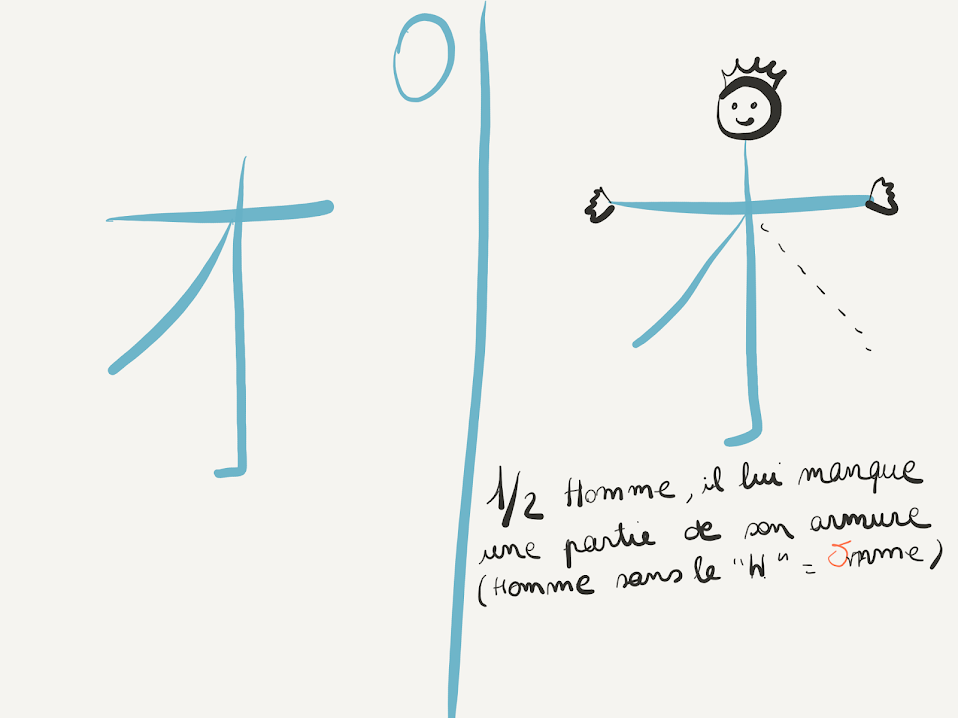 O
オ
1/2 Homme, il lui manque
une partie de son armure
(Homme sans le "H" = Omme)